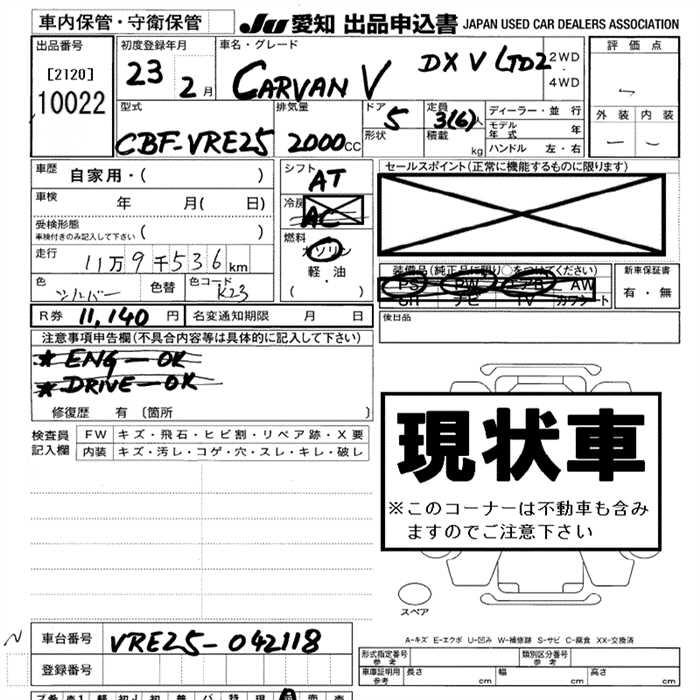 車内保管・守衛保管
JU 愛知 出品申込書 JAPAN USED CAR DEALERS ASSOCIATION
出品番号
[2120]
10022
初度登録年月
23 2月
車名・グレード
CARVAN V DX V LTD2
2WD
・
4WD
評価点
外装 内装
型式
CBF-VRE25
排気量
2000cc
ドア 5
形状
定員 3(6)人
積載 kg
ディーラー・並行
モデル年式 年
ハンドル 左・右
車歴 自家用・( )
車検 年 月( 日)
受検形態
車検付きのみ記入して下さい ( )
走行 11万9千536km
色 シルバー 色替 色コード K23
シフト AT
冷房 AC
燃料
ガソリン
軽・油
( ・ )
セールスポイント(正常に機能するものに限ります)
装備品(純正品に限り○をつけてください)
PS PW エアB AW
SR ナビ TV カワシート
新車保証書
有・無
後日品
R券 11,140円 名変通知期限 月 日
注意事項申告欄(不具合内容等は具体的に記入して下さい)
★ ENG—OK
★ DRIVE—OK
修復歴 有 〔箇所 〕
検査員記入欄
FW キズ・飛石・ヒビ割・リペア跡・X要
内装 キズ・汚レ・コゲ・穴・スレ・キレ・破レ
現状車
※このコーナーは不動車も含み
ますのでご注意下さい
スペア
A-キズ E-エクボ U-凹み W-補修跡 S-サビ C-腐食 XX-交換済
車台番号 VRE25-042118
登録番号
形式指定番号
参考
類別区分番号
参考
車庫証明用
参考
長さ cm 幅 cm 高さ cm